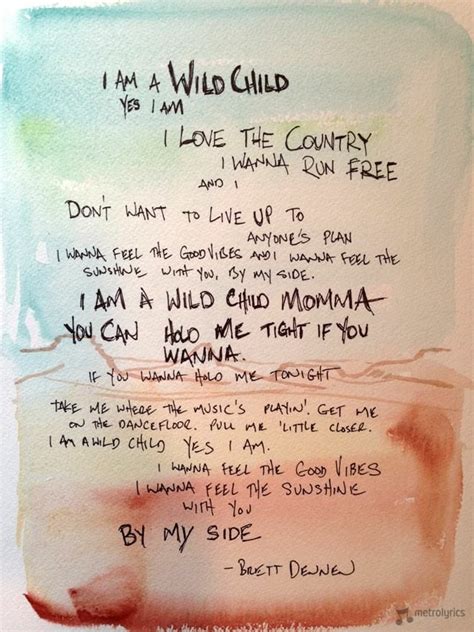 I AM A WILD CHILD
YES I AM
I LOVE THE COUNTRY
I WANNA RUN FREE
AND I
DON'T WANT TO LIVE UP TO
ANYONE'S PLAN
I WANNA FEEL THE GOOD VIBES AND I WANNA FEEL THE
SUNSHINE WITH YOU, BY MY SIDE.
I AM A WILD CHILD MOMMA
YOU CAN HOLD ME TIGHT IF YOU
WANNA.
IF YOU WANNA HOLD ME TONIGHT
TAKE ME WHERE THE MUSIC'S PLAYIN'. GET ME
ON THE DANCEFLOOR. PULL ME 'LITTLE CLOSER.
I AM A WILD CHILD YES I AM.
I WANNA FEEL THE GOOD VIBES
I WANNA FEEL THE SUNSHINE
WITH YOU
BY MY SIDE
- BRETT DENNEN
metrolyrics